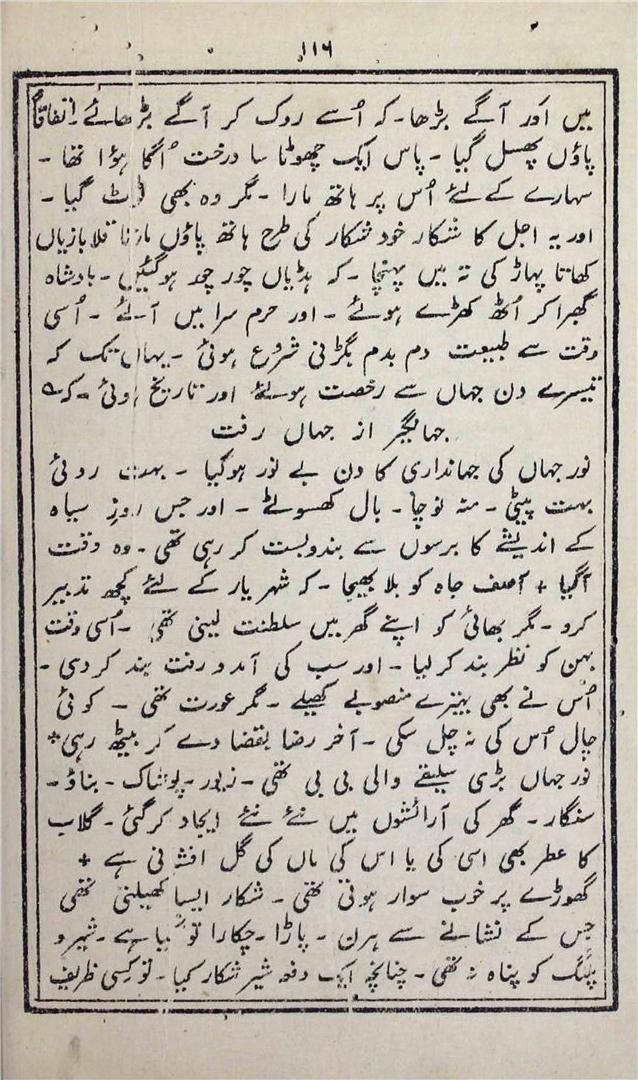 ۱۱۶
ہیں اور آگے بڑھا۔ کہ اُسے روک کر آگے بڑھائے۔ اتفاقاً
پاؤں پھسل گیا ۔ پاس ایک چھوٹا سا درخت اُگا ہؤا تھا ۔
سہارے کے لئے اُس پر ہاتھ مارا ۔ مگر وہ بھی ٹوٹ گیا ۔
اور یہ اجل کا شکار خود شکار کی طرح ہاتھ پاؤں مارتا قلابازیاں
کھاتا پہاڑ کی تہ میں پہنچا ۔ کہ ہڈیاں چور چور ہوگئیں ۔ بادشاہ
گھبرا کر اُٹھ کھڑے ہوئے ۔ اور حرم سرا میں آئے ۔ اُسی
وقت سے طبیعت دم بدم بگڑنی شروع ہوئی ۔ یہاں تک کہ
تیسرے دن جہاں سے رخصت ہوئے اور تاریخ ہوئی ۔ کہ
جہانگیر از جہاں رفت
نور جہاں کی جہانداری کا دن بے نور ہوگیا ۔ بہت روئی
بہت پیٹی ۔ منہ نوچا ۔ بال کھسوٹے ۔ اور جس روزِ سیاہ
کے اندیشے کا برسوں سے بندوبست کر رہی تھی ۔ وہ وقت
آگیا + آصف جاہ کو بلا بھیجا ۔ کہ شہر یار کے لئے کچھ تدبیر
کرو ۔ مگر بھائی کو اپنے گھر میں سلطنت لینی تھی ۔ اُسی وقت
بہن کو نظر بند کر لیا ۔ اور سب کی آمد و رفت بند کر دی ۔
اُس نے بھی بہتیرے منصوبے کھیلے ۔ مگر عورت تھی ۔ کوئی
چال اُس کی نہ چل سکی ۔ آخر رضا بقضا دے کر بیٹھ رہی +
نور جہاں بڑی سلیقے والی بی بی تھی ۔ زیور ۔ پوشاک ۔ بناؤ ۔
سنگار ۔ گھر کی آرائشوں میں نئے نئے ایجاد کر گئی ۔ گلاب
کا عطر بھی اسی کی یا اس کی ماں کی گل افشانی ہے +
گھوڑے پر خوب سوار ہوتی تھی ۔ شکار ایسا کھیلتی تھی
جس کے نشانے سے ہرن ۔ پاڑا ۔ چکارا تو کیا ہے ۔ شیر و
پلنگ کو پناہ نہ تھی ۔ چنانچہ ایک دفعہ شیر شکار کیا ۔ تو کسی ظریف